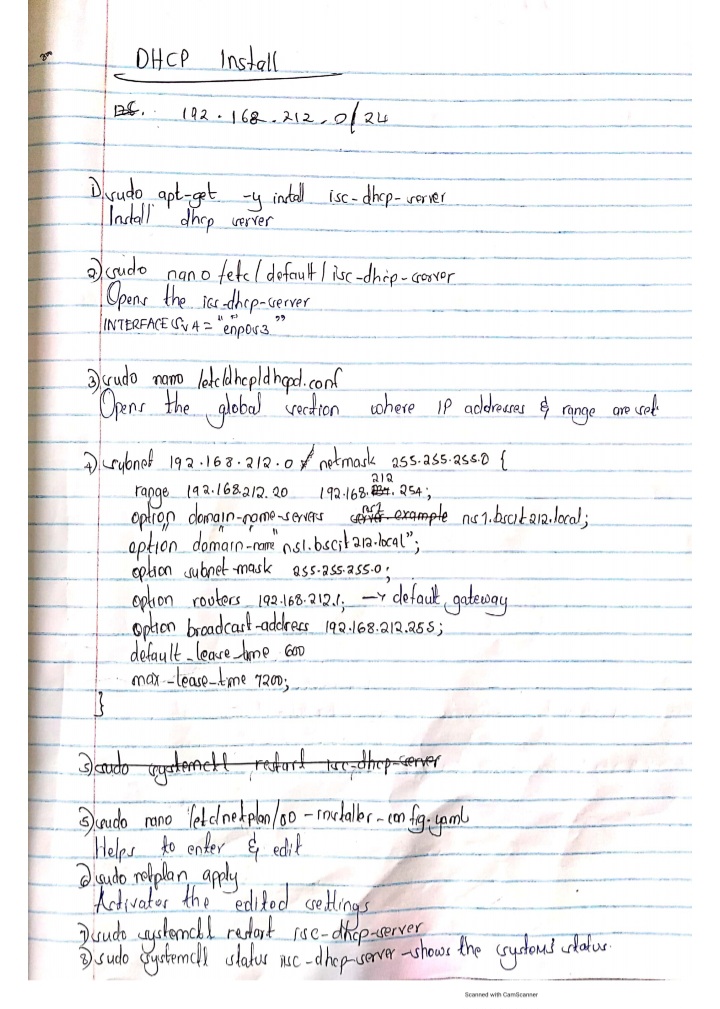 DHCP Install
192.168.212.0/24
1) sudo apt-get -y install isc-dhcp-server
Install dhcp server
2) sudo nano /etc/default/isc-dhcp-server
Opens the isc-dhcp-server
INTERFACESv4 = "enp0s3"
3) sudo nano /etc/dhcp/dhcpd.conf
Opens the global section where IP addresses & range are set
4) subnet 192.168.212.0 netmask 255.255.255.0 {
range 192.168.212.20 192.168.212.254;
option domain-name-servers ns1.bscit212.local;
option domain-name "ns1.bscit212.local";
option subnet-mask 255.255.255.0;
option routers 192.168.212.1; → default gateway
option broadcast-address 192.168.212.255;
default_lease_time 600
max-lease-time 7200;
}
5) sudo systemctl restart isc-dhcp-server
5) sudo nano /etc/netplan/00-installer-config.yaml
Helps to enter & edit
6) sudo netplan apply
Activates the edited settings
7) sudo systemctl restart isc-dhcp-server
8) sudo systemctl status isc-dhcp-server - shows the systems status.
Scanned with CamScanner